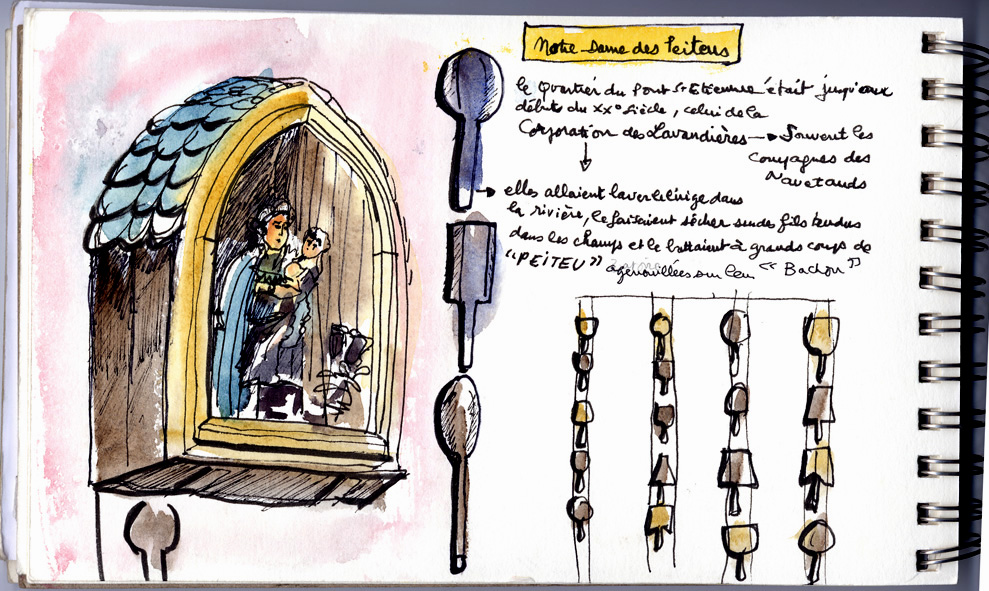 Notre-Dame des Peiteus
le Quartier du Pont St Etienne était jusqu'aux
débuts du XX° siècle, celui de la
Corporation des Lavandières → Souvent les
compagnes des
Navetauds
elles allaient laver le linge dans
la rivière, le faisaient sécher sur des fils tendus
dans les champs et le battaient à grands coups de
"PEITEU" agenouillées sur leur "Bachou"